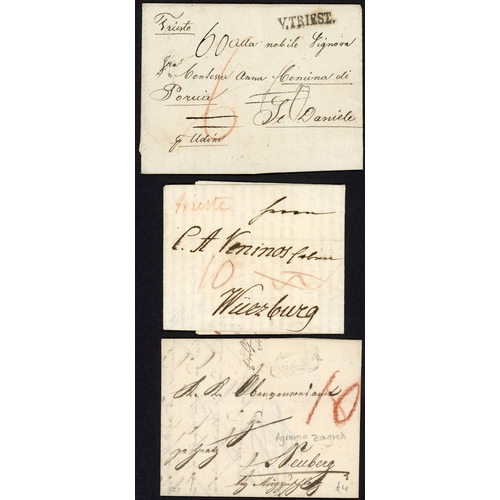 Trieste
V. TRIEST.
60 Alla nobile Signora
Contessa Anna Comina di
Porcia
6
10
St Daniele
Udine
Trieste
Herrn
C. A Veninos
10
Würzburg
K. K.
10
Agram Zagreb
Neuberg
£4